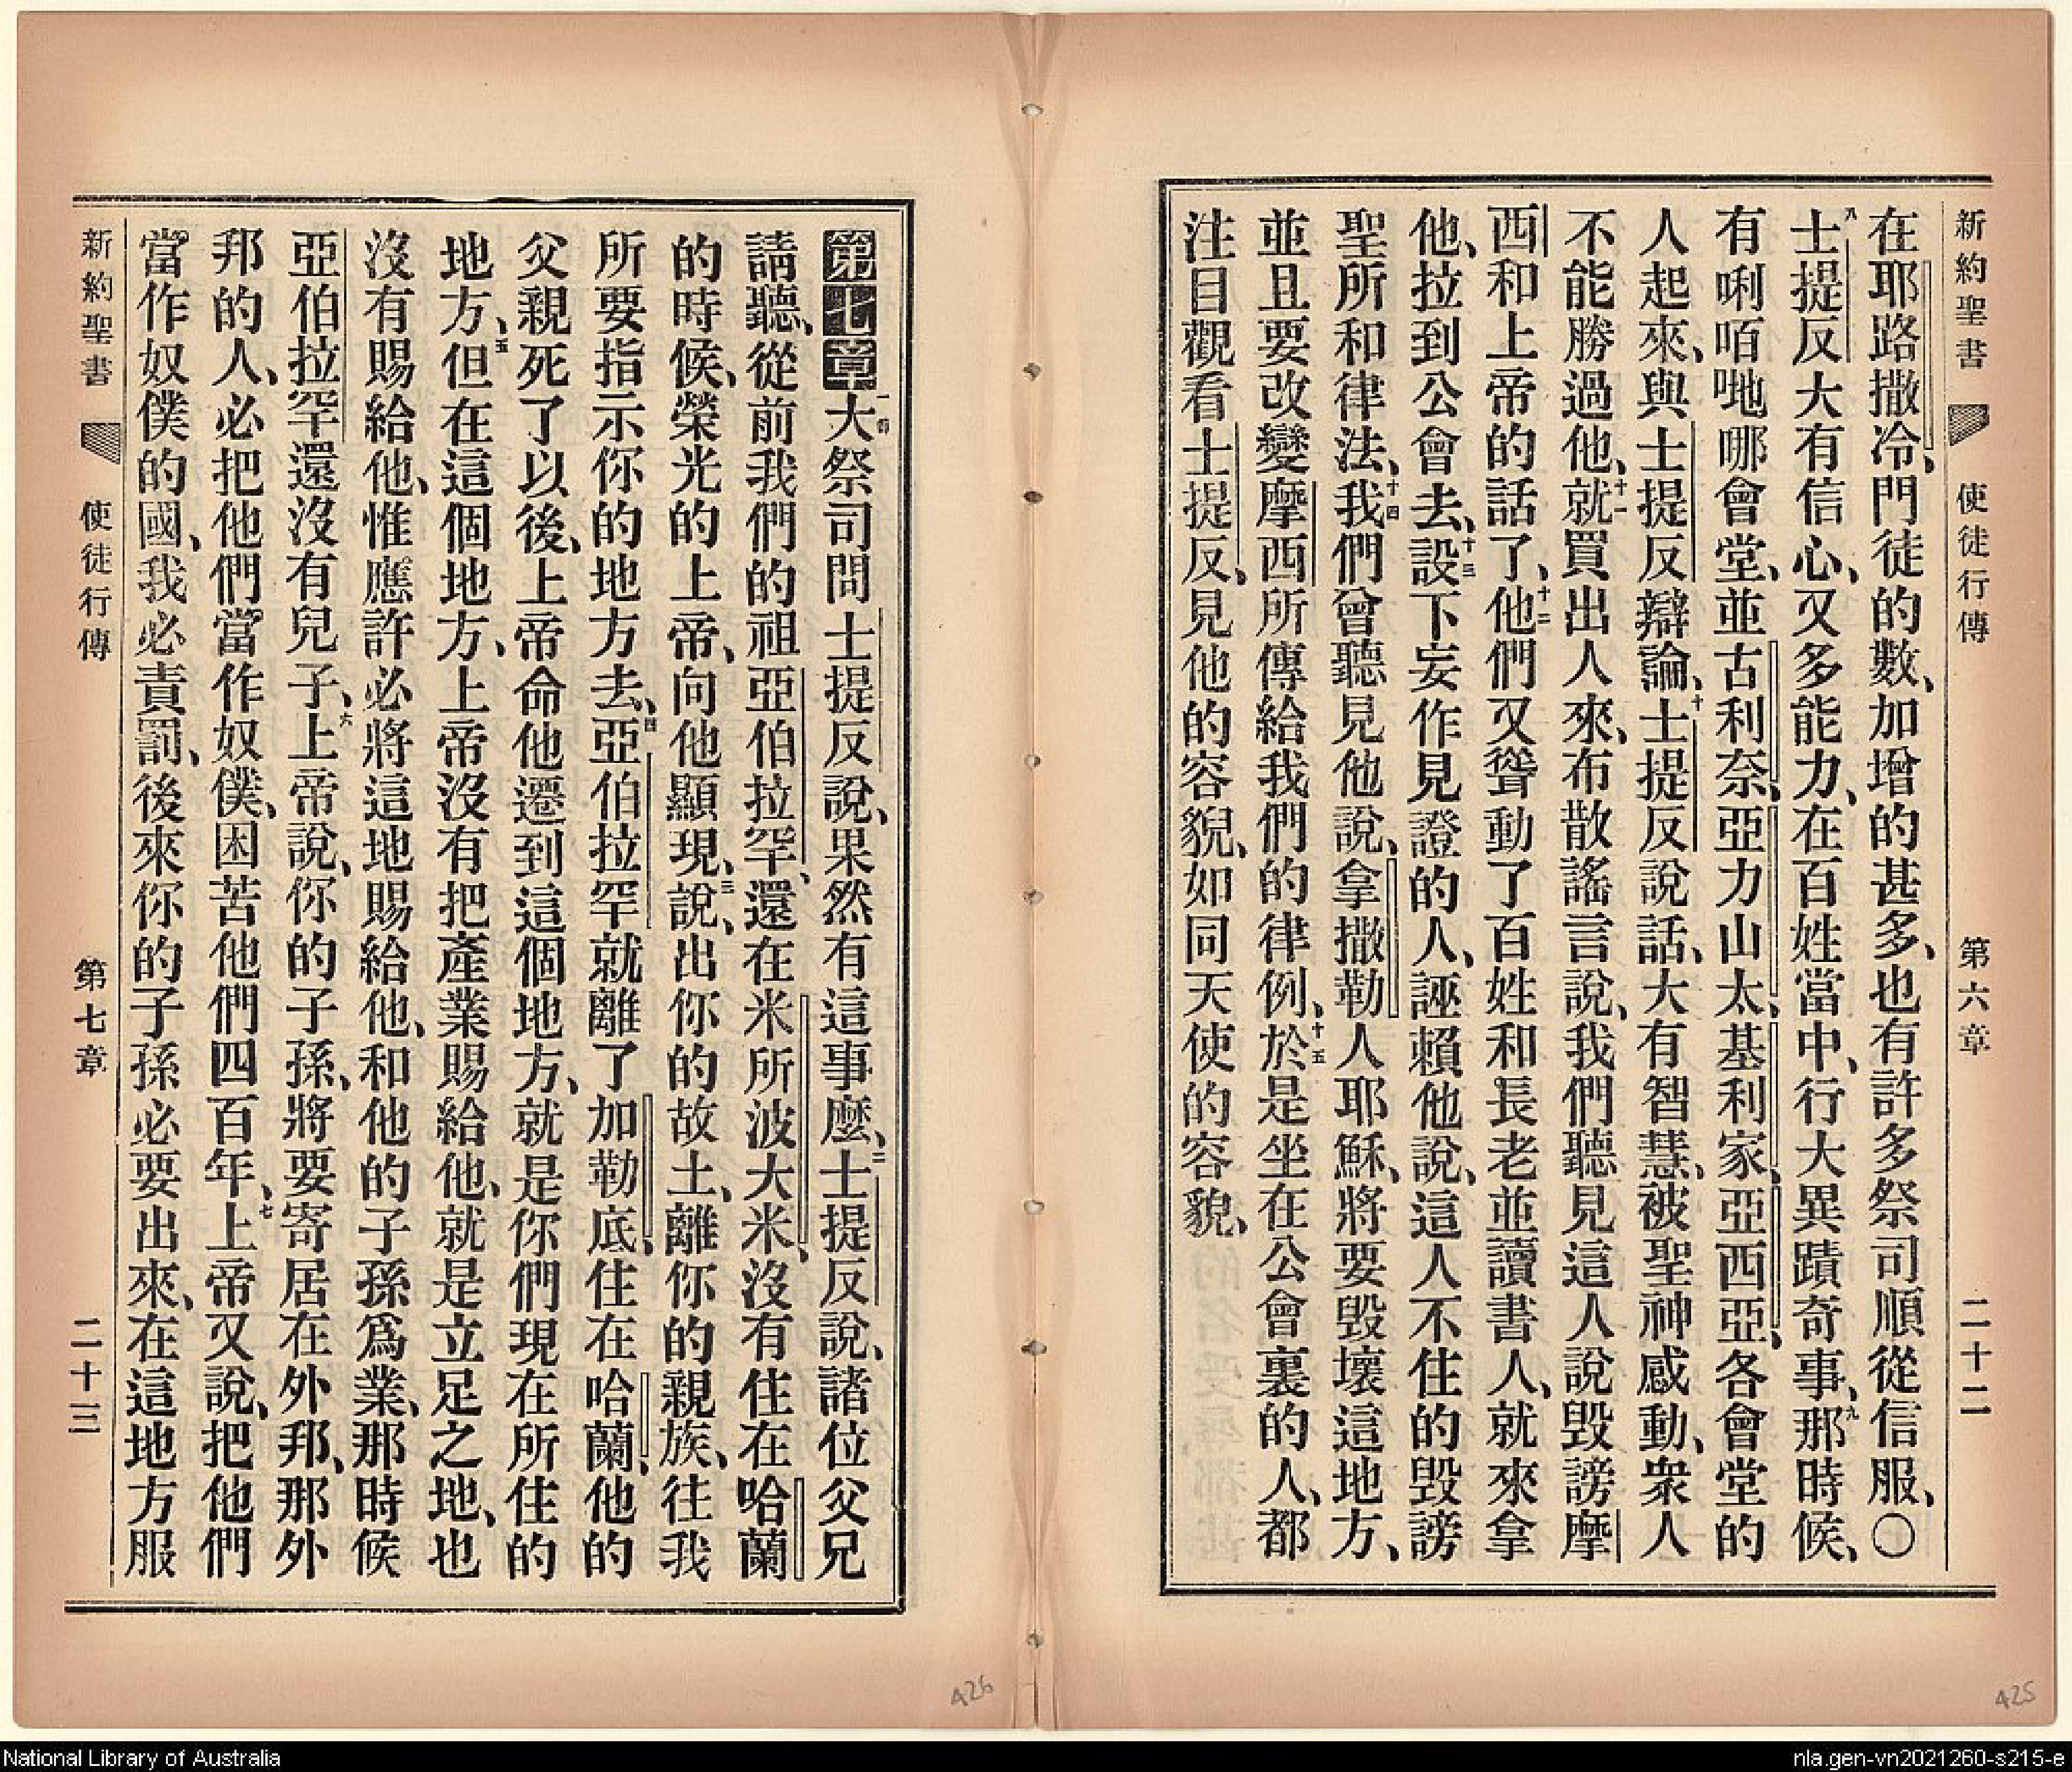 新約聖書 使徒行傳 第六章 二十二
在耶路撒冷、門徒的數、加增的甚多、也有許多祭司順從信服、〇
八士提反大有信心、又多能力、在百姓當中、行大異蹟奇事、九那時候、
有唎咟哋哪會堂、並古利奈、亞力山太、基利家、亞西亞、各會堂的
人起來、與士提反辯論、十士提反說話、大有智慧、被聖神感動、衆人
不能勝過他、十一就買出人來、布散謠言說、我們聽見這人說毀謗摩
西和上帝的話了、十二他們又聳動了百姓和長老並讀書人、就來拿
他、拉到公會去、十三設下妄作見證的人、誣賴他說、這人不住的毀謗
聖所和律法、十四我們曾聽見他說、拿撒勒人耶穌、將要毀壞這地方、
並且要改變摩西所傳給我們的律例、十五於是坐在公會裏的人、都
注目觀看士提反、見他的容貌、如同天使的容貌、
第七章 一節大祭司問士提反說、果然有這事麽、二士提反說、諸位父兄
請聽、從前我們的祖亞伯拉罕、還在米所波大米、沒有住在哈蘭
的時候、榮光的上帝、向他顯現、三說、出你的故土、離你的親族、往我
所要指示你的地方去、四亞伯拉罕就離了加勒底、住在哈蘭、他的
父親死了以後、上帝命他遷到這個地方、就是你們現在所住的
地方、五但在這個地方、上帝沒有把產業賜給他、就是立足之地、也
沒有賜給他、惟應許必將這地賜給他、和他的子孫爲業、那時候
亞伯拉罕還沒有兒子、六上帝說、你的子孫、將要寄居在外邦、那外
邦的人、必把他們當作奴僕、困苦他們四百年、七上帝又說、把他們
當作奴僕的國、我必責罰、後來你的子孫必要出來、在這地方服
新約聖書 使徒行傳 第七章 二十三
426
425
National Library of Australia
nla.gen-vn2021260-s215-e